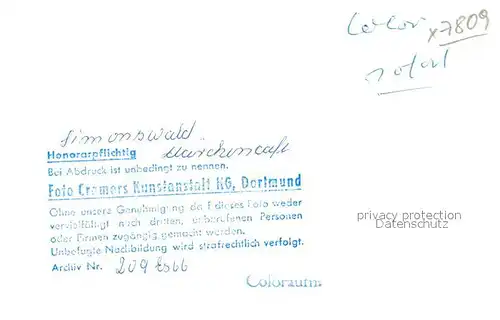 Color x7809
sofort
Simonswald
Märchencafe
Honorarpflichtig
Bei Abdruck ist unbedingt zu nennen.
Foto Cramers Kunstanstalt KG, Dortmund
Ohne unsere Genehmigung darf dieses Foto weder
vervielfältigt noch dritten, unberufenen Personen
oder Firmen zugängig gemacht werden.
Unbefugte Nachbildung wird strafrechtlich verfolgt.
Archiv Nr.
privacy protection
Datenschutz